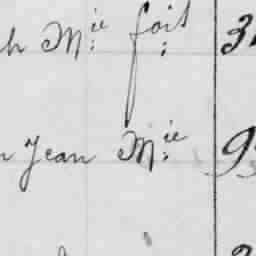 h M.ie foi:t 3
n Jean M.ie 9